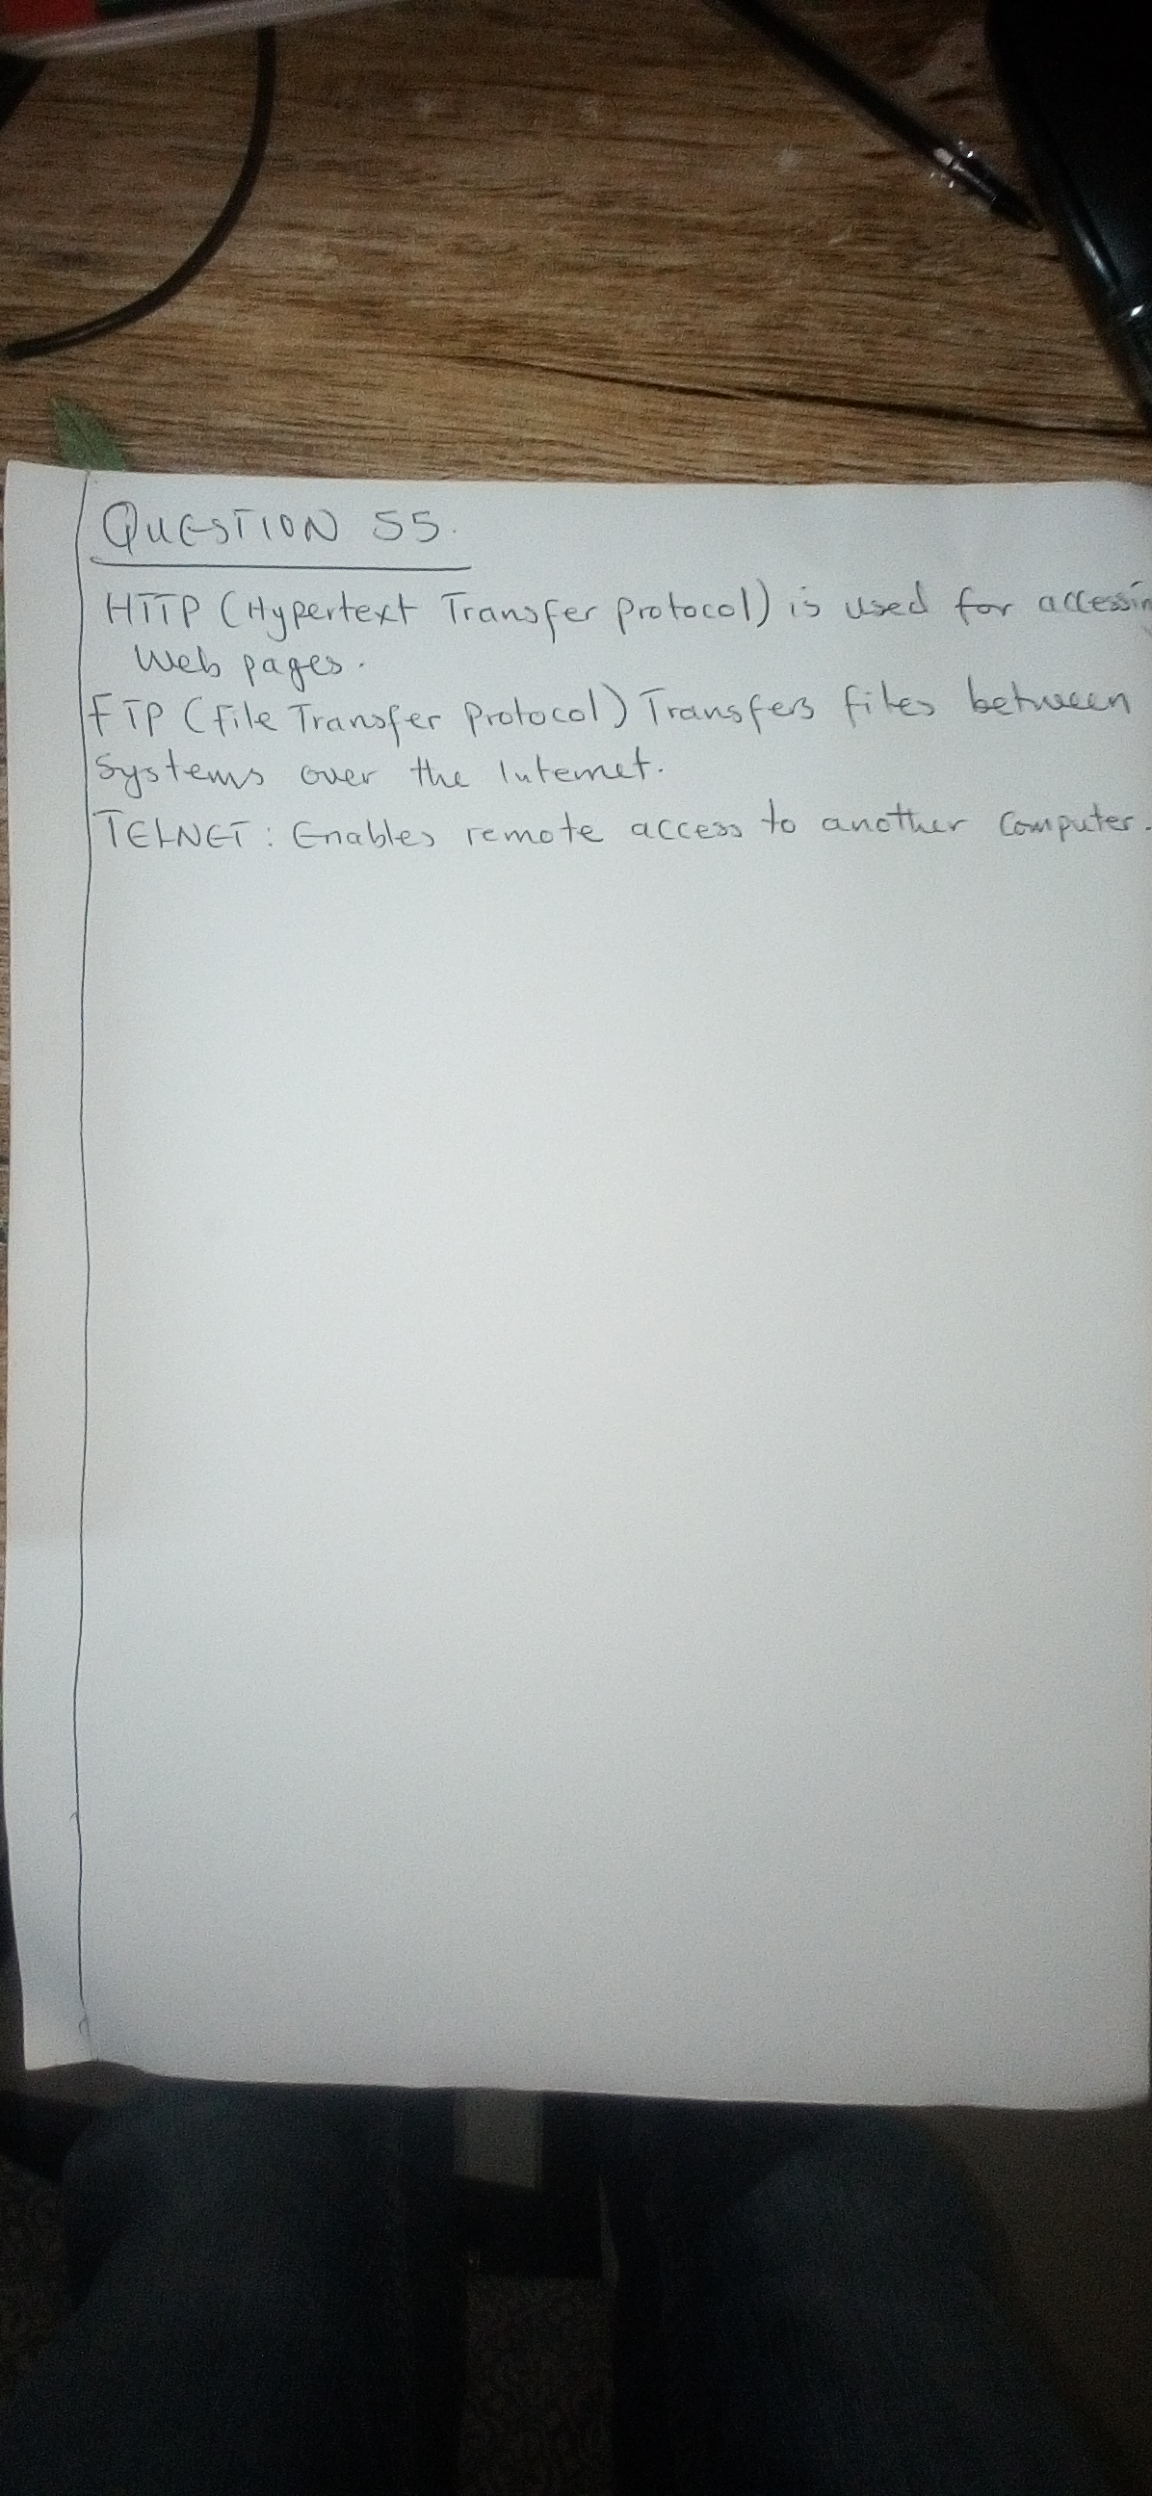 QUESTION 55.
HTTP (Hypertext Transfer protocol) is used for accessin
Web pages.
FTP (File Transfer Protocol) Transfers files between
Systems over the Internet.
TELNET: Enables remote access to another Computer.